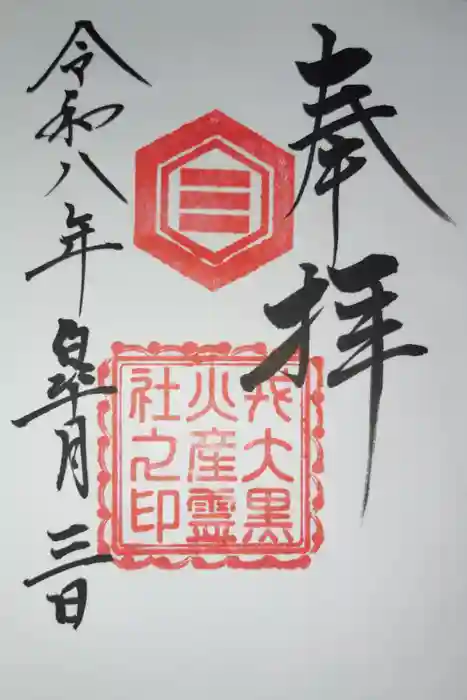 奉拝
戎大黒
火産霊
社之印
令和八年皐月三日